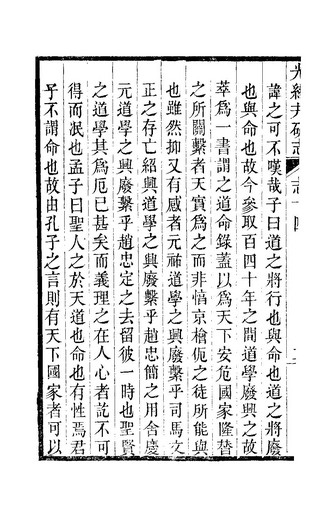 光緒井研志 志十四
諱之可不嘆哉子曰道之將行也與命也道之將廢
也與命也故今參取百四十年之間道學廢興之故
萃爲一書謂之道命錄蓋以爲天下安危國家隆替
之所關繫者天實爲之而非惇京檜侂之徒所能與
也雖然抑又有感者元祐道學之興廢繫乎司馬文
正之存亡紹興道學之興廢繫乎趙忠簡之用舍慶
元道學之興廢繫乎趙忠定之去留彼一時也聖賢
之道學其爲厄已甚矣而義理之在人心者訖不可
得而泯也孟子曰聖人之於天道也命也有性焉君
子不謂命也故由孔子之言則有天下國家者可以